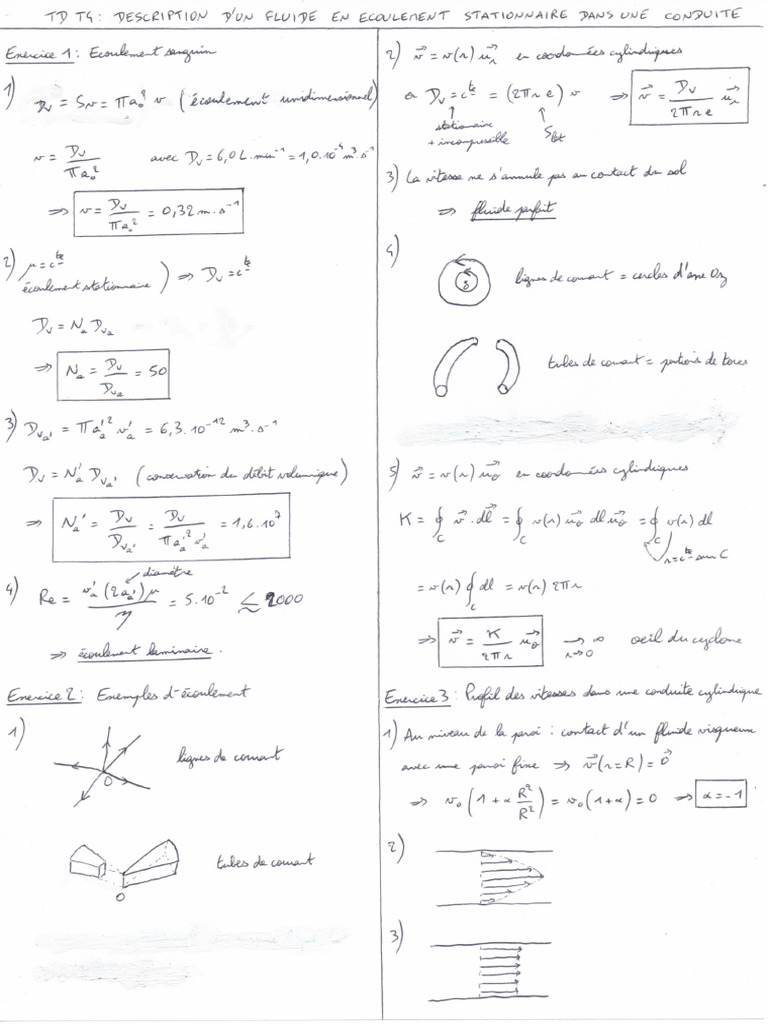 TD T4: DESCRIPTION D'UN FLUIDE EN ECOULEMENT STATIONNAIRE DANS UNE CONDUITE
Exercice 1 : Ecoulement sanguin
1)
Dv = Sv = πa₀² v (écoulement unidimensionnel)
v = Dv / πa₀² avec Dv = 6,0 L.min⁻¹ = 1,0.10⁻⁴ m³.s⁻¹
⇒ v = Dv / πa₀² = 0,32 m.s⁻¹
2) μ = cte
écoulement stationnaire ) ⇒ Dv = cte
Dv = Na Dva
⇒ Na = Dv / Dva = 50
3) Dva' = πa'a² v'a = 6,3.10⁻¹² m³.s⁻¹
Dv = Na' Dva' (conservation du débit volumique)
⇒ Na' = Dv / Dva' = Dv / πa'a² v'a = 1,6.10⁷
diamètre
4) Re = v'a (2a'a) μ / η = 5.10⁻² ≲ 2000
⇒ écoulement laminaire.
Exercice 2 : Exemples d'écoulement
1)
O
lignes de courant
tubes de courant
O
2) v⃗ = v(r) u⃗r en coordonnées cylindriques
or Dv = cte = (2πr e) v ⇒ v⃗ = Dv / 2πre u⃗r
stationnaire
+ incompressible
Slat
3) La vitesse ne s'annule pas au contact du sol
⇒ fluide parfait
4)
lignes de courant = cercles d'axe Oz
tubes de courant = portions de tores
5) v⃗ = v(r) u⃗θ en coordonnées cylindriques
K = ∮C v⃗ . dl⃗ = ∮C v(r) u⃗θ dl u⃗θ = ∮C v(r) dl
r = cte sur C
= v(r) ∮C dl = v(r) 2πr
⇒ v⃗ = K / 2πr u⃗θ → ∞ r→0 oeil du cyclone
Exercice 3 : Profil des vitesses dans une conduite cylindrique
1) Au niveau de la paroi : contact d'un fluide visqueux
avec une paroi fixe ⇒ v⃗(r=R) = 0⃗
⇒ v₀ (1 + α R²/R²) = v₀ (1+α) = 0 ⇒ α = -1
2)
3)